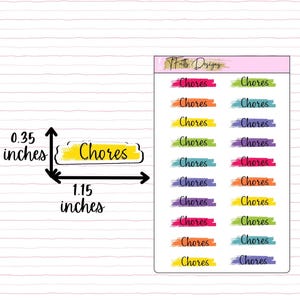 0.35
inches
Chores
1.15
inches
Designs
Chores Chores
Chores Chores
Chores Chores
Chores Chores
Chores Chores
Chores Chores
Chores Chores
Chores Chores
Chores Chores
Chores Chores